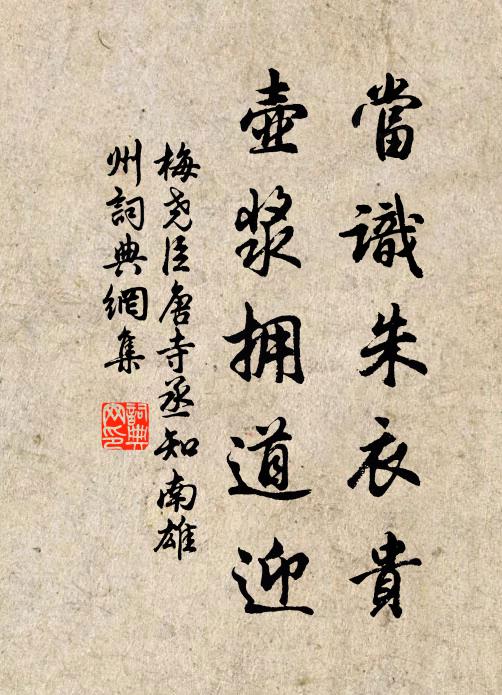 當識朱衣貴
壺漿拥道迎
梅尧臣唐寺丞知南雄
州詞典網集
詞典網印